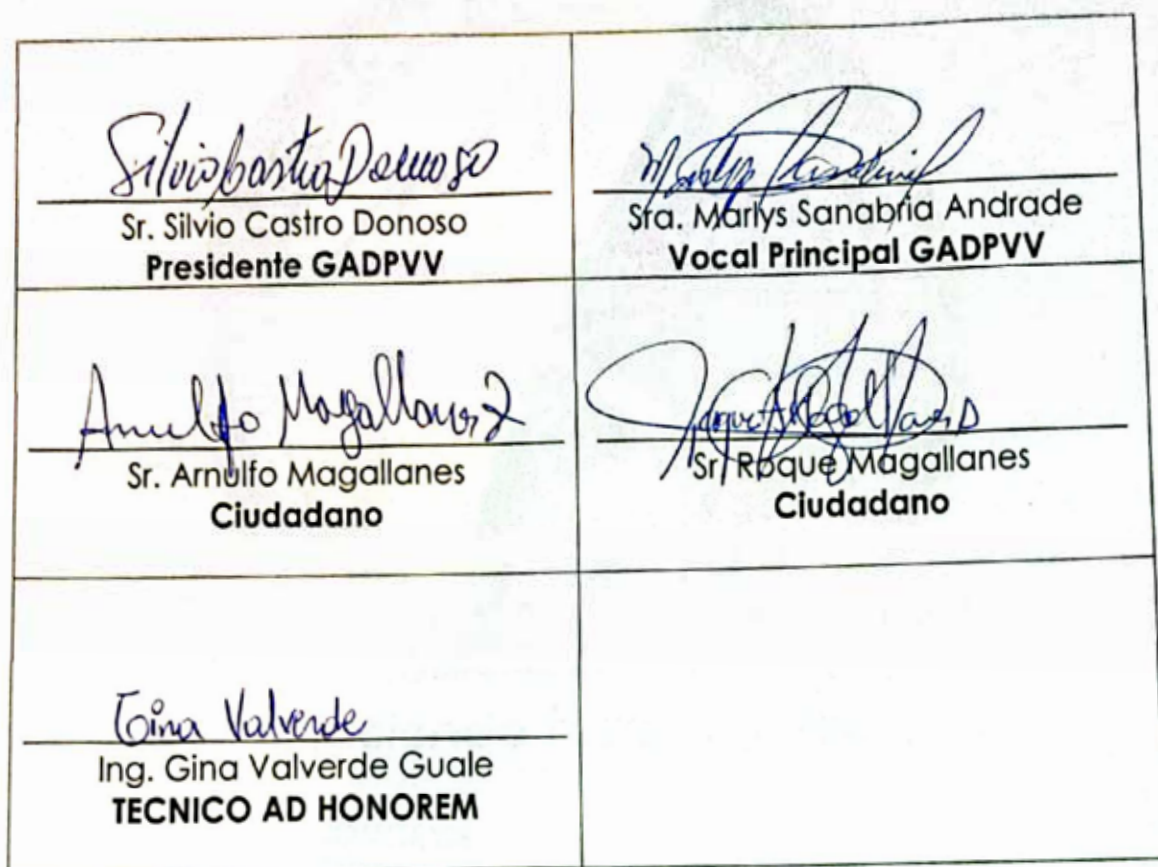 Silvio Castro Donoso
Sr. Silvio Castro Donoso
Presidente GADPVV
Sra. Marlys Sanabria Andrade
Vocal Principal GADPVV
Arnulfo Magallanes
Sr. Arnulfo Magallanes
Ciudadano
Sr. Roque Magallanes
Ciudadano
Gina Valverde
Ing. Gina Valverde Guale
TECNICO AD HONOREM